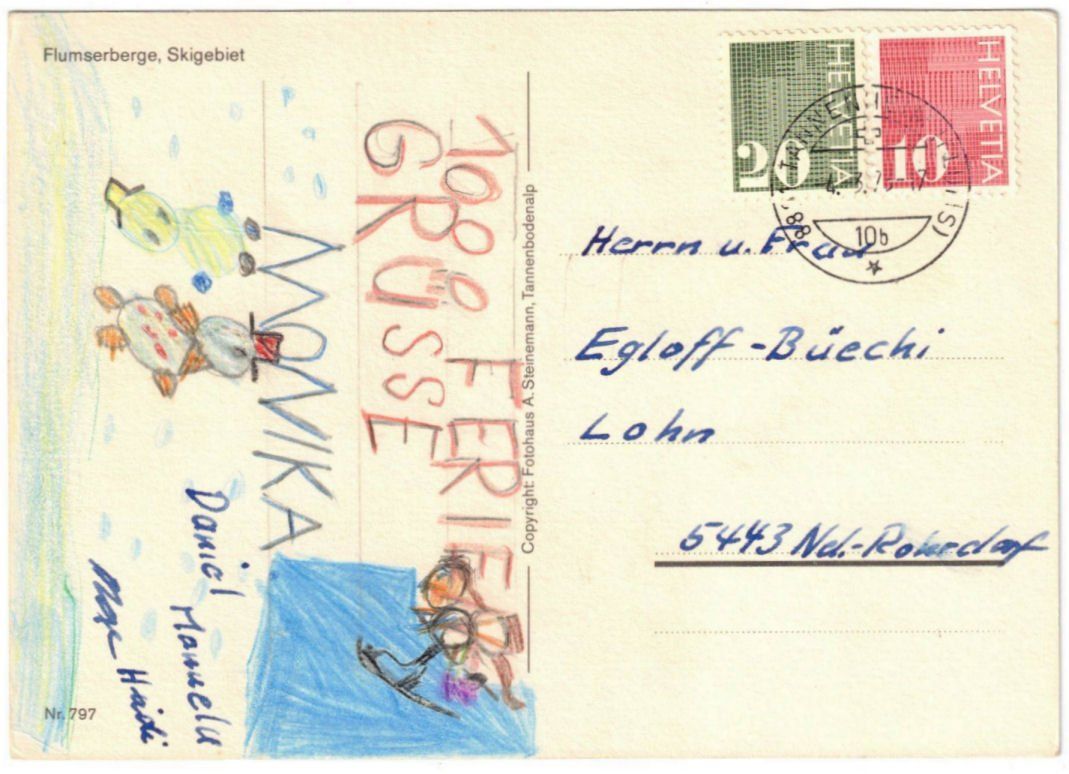 Flumserberge, Skigebiet
FERIE
GRÜSSE
MONIKA
Daniel
Manuela
Heidi
Nr. 797
Copyright: Fotohaus A. Steinemann, Tannenbodenalp
HELVETIA
20
HELVETIA
10
10b
Herrn u. Frau
Egloff-Büechi
Lohn
5443 Nd.-Rohrdorf